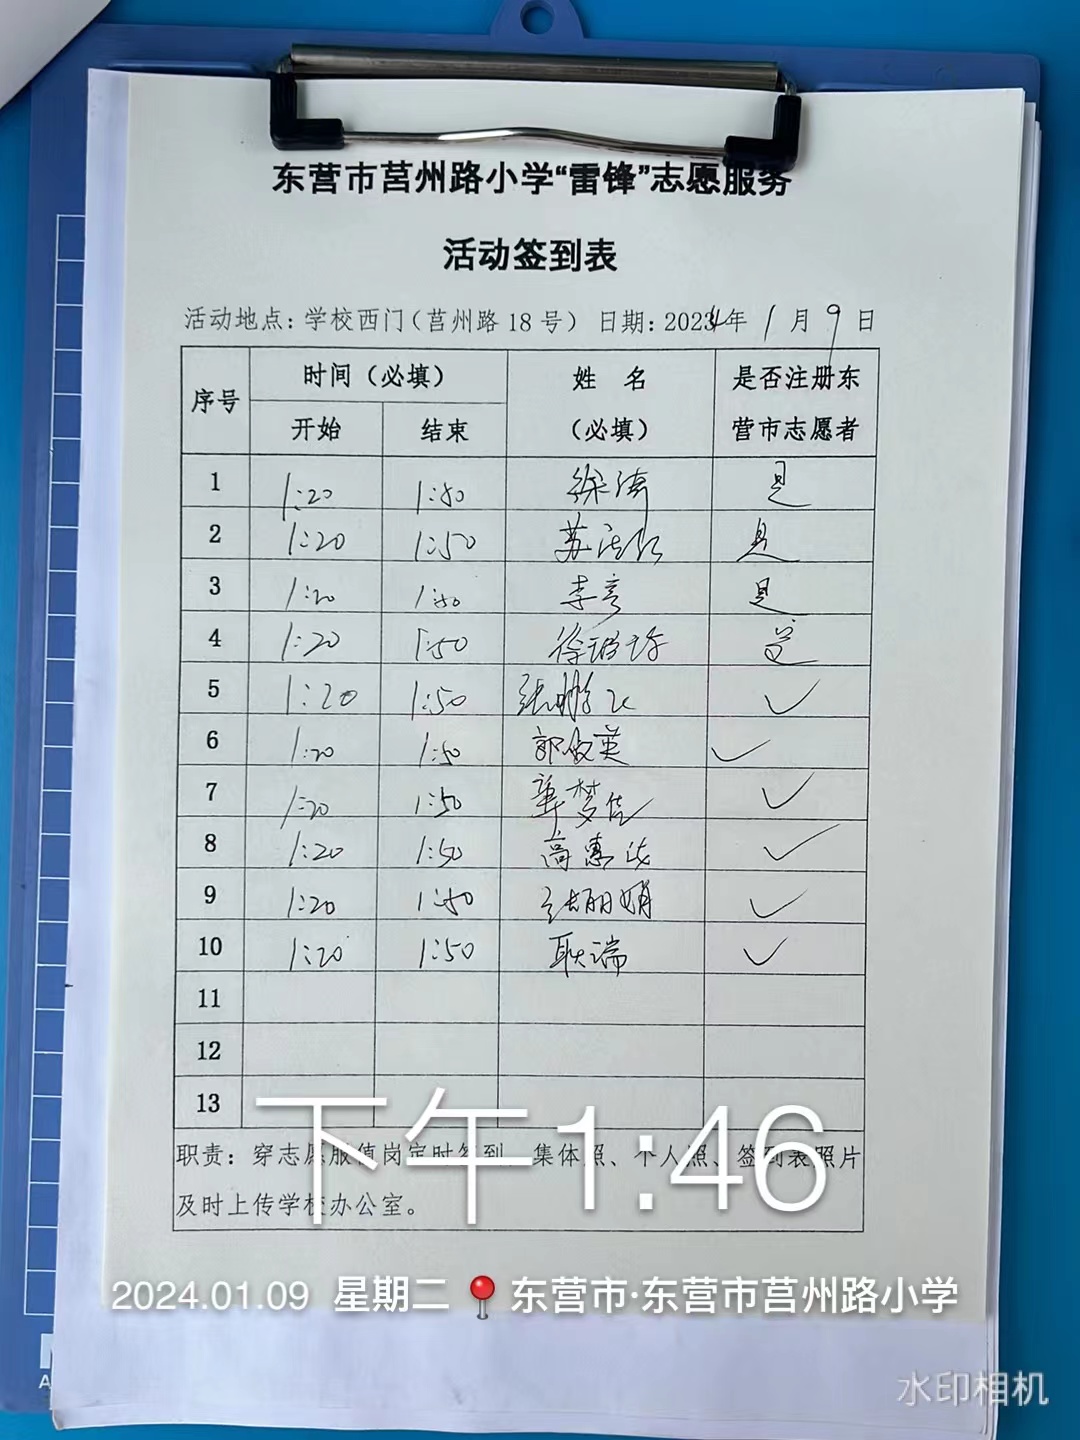 东营市莒州路小学“雷锋”志愿服务
活动签到表
活动地点：学校西门（莒州路 18 号） 日期：2024年 1 月 9 日
序号 时间（必填） 姓 名（必填） 是否注册东营市志愿者
开始 结束
1 1:20 1:50 徐 是
2 1:20 1:50 苏 是
3 1:20 1:50 李 是
4 1:20 1:50 徐 是
5 1:20 1:50 张鹏飞 ✓
6 1:20 1:50 郭俊英 ✓
7 1:20 1:50 梦佳 ✓
8 1:20 1:50 高惠 ✓
9 1:20 1:50 张丽娟 ✓
10 1:20 1:50 耿端 ✓
11
12
13
职责：穿志愿服值岗定时签到，集体照、个人照、签到表照片
及时上传学校办公室。
下午1:46
2024.01.09 星期二 东营市·东营市莒州路小学
水印相机